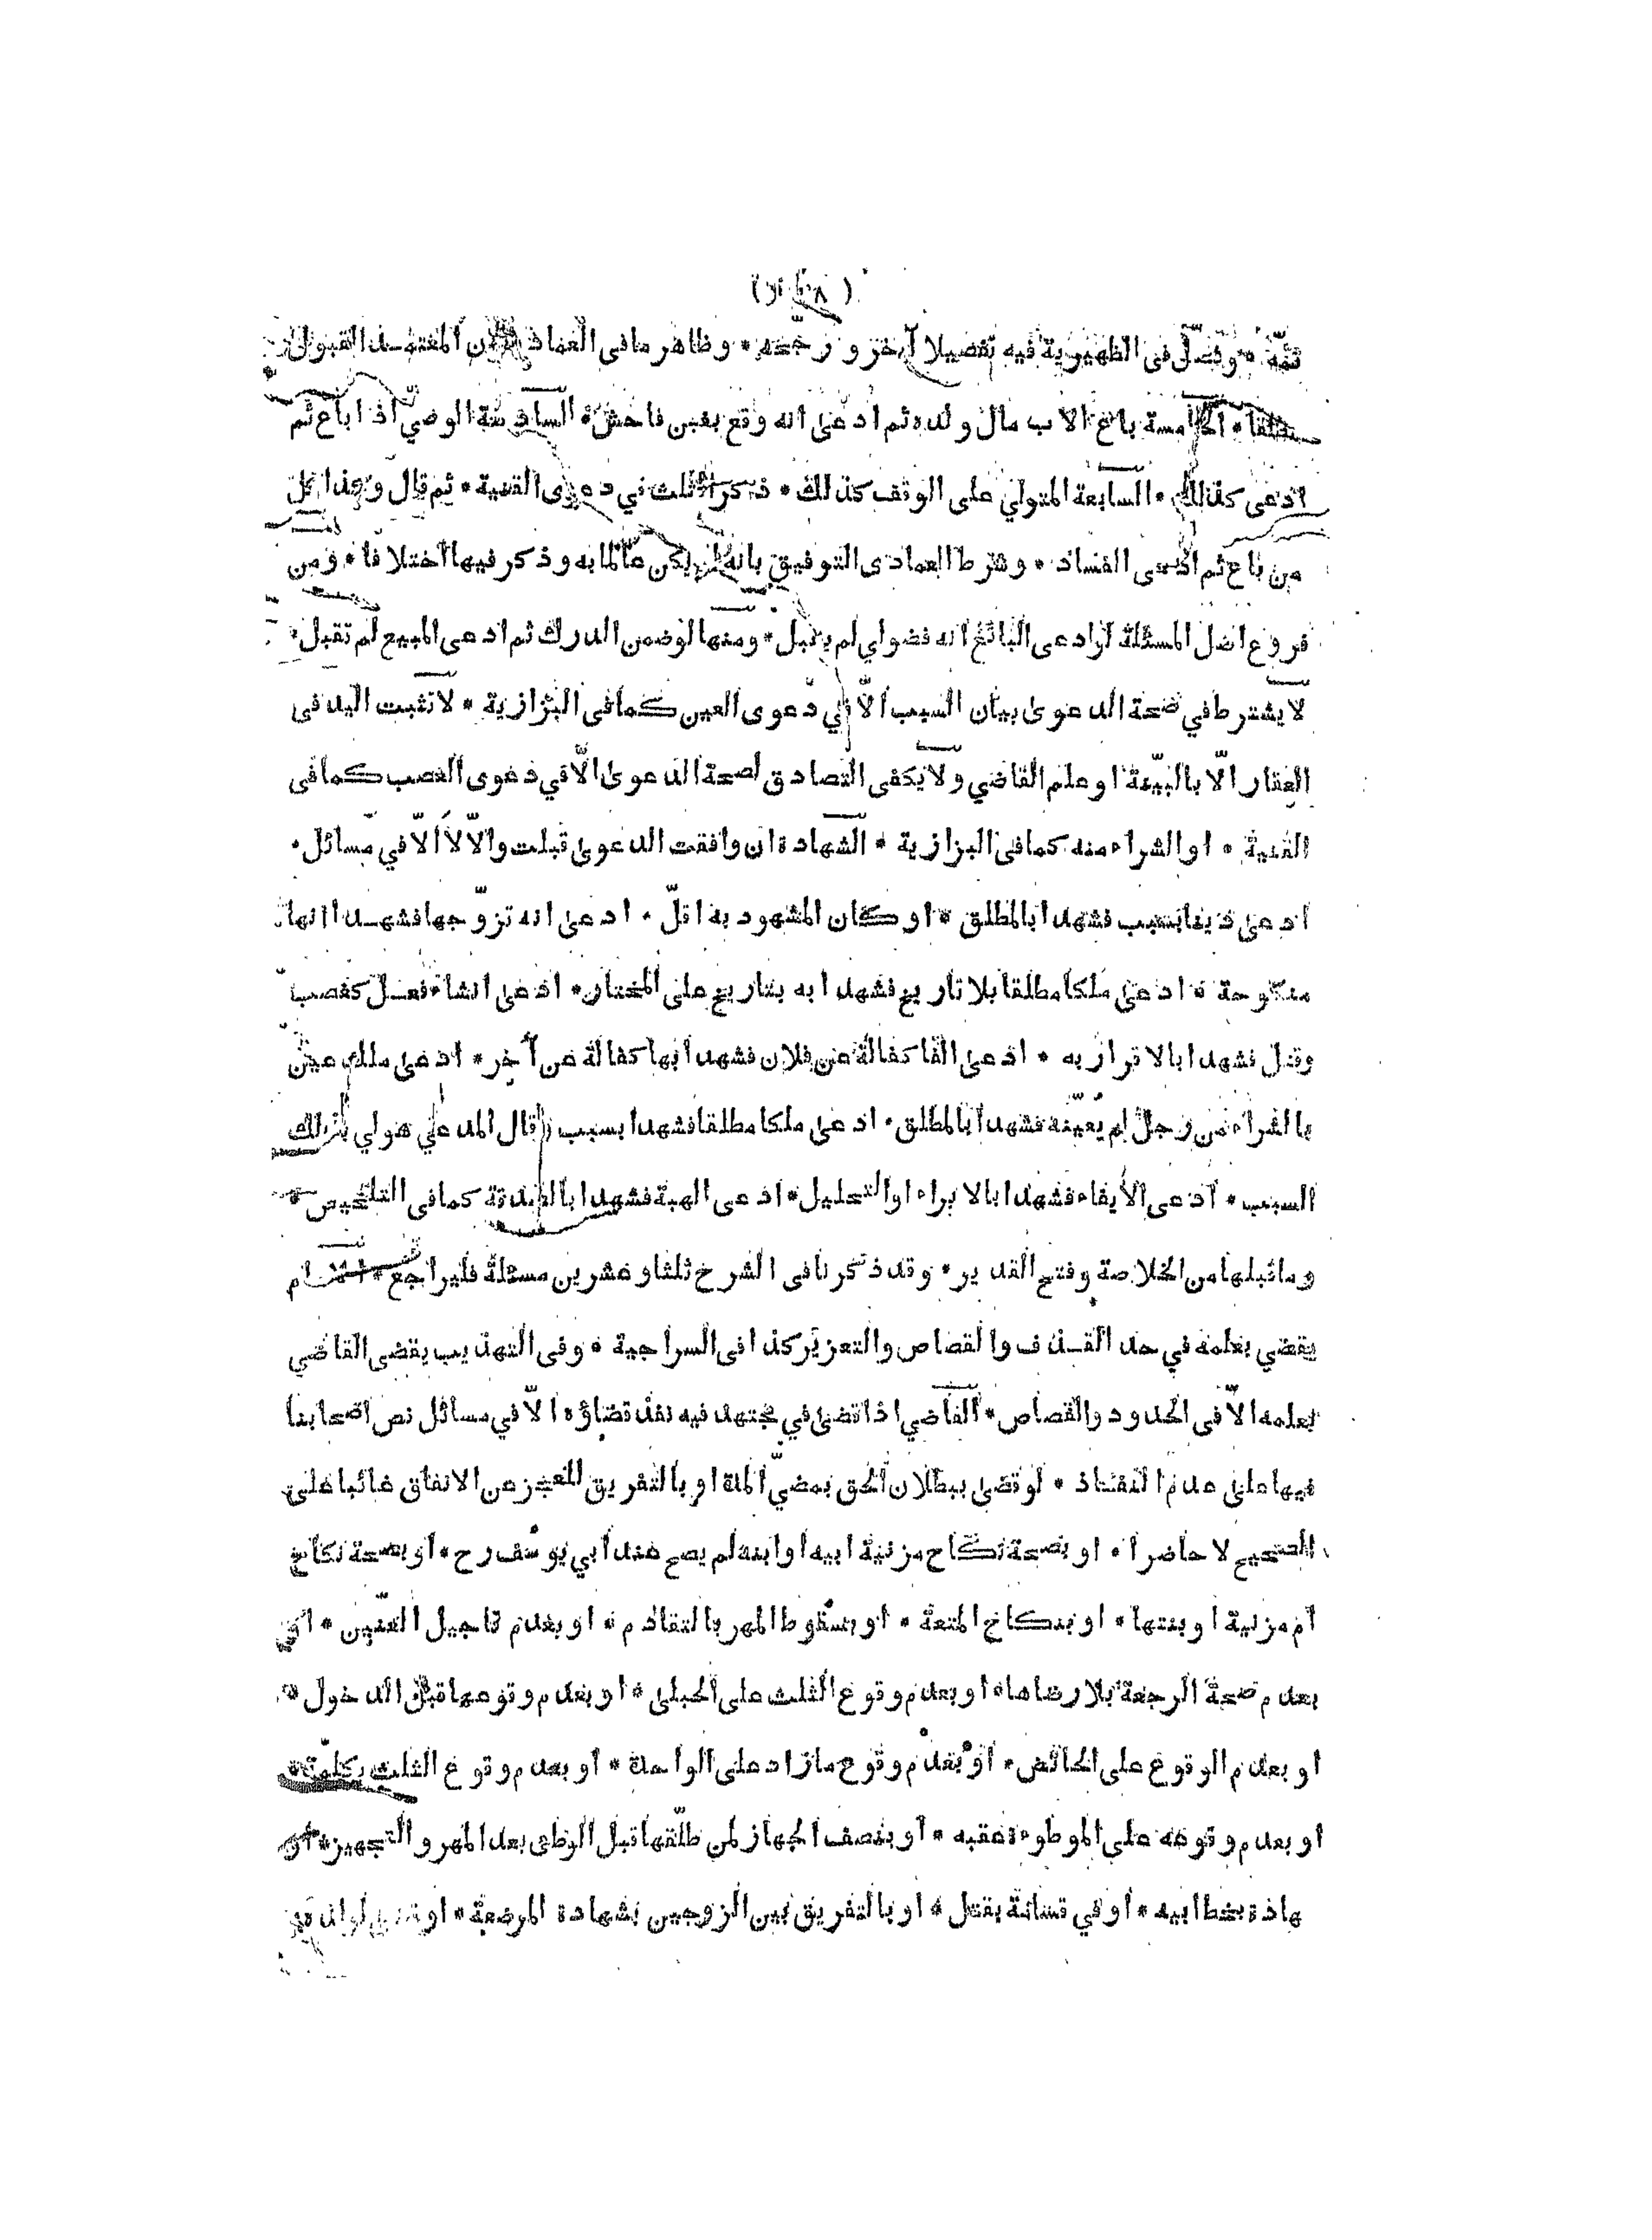 ثمّة * وفصّل فى الظهيرية فيه تفصيلا آخر ورجّحه * وظاهر مافى العمادية ان المعتمد القبول
مطلقا * الخامسة باع الاب مال ولده ثم ادعى انه وقع بغبن فاحش * السادسة الوصيّ اذا باع ثم
ادعى كذلك * السابعة المتولي على الوقف كذلك * ذكر الثلث في دعوى القنية * ثم قال وهذا كل
من باع ثم ادعى الفساد * وشرط العمادى التوفيق بانه لم يكن عالما به وذكر فيها اختلافا * ومن
فروع اصل المسئلة لو ادعى البائع انه فضولي لم يقبل * ومنها لو ضمن الدرك ثم ادعى المبيع لم تقبل *
لا يشترط في صحة الدعوى بيان السبب الّا في دعوى العين كما فى البزازية * لا تثبت اليد فى
العقار الّا بالبيّنة او علم القاضي ولا يكفى التصادق لصحة الدعوى الّا في دعوى الغصب كما فى
القنية * او الشراء منه كما فى البزازية * الشهادة ان وافقت الدعوى قبلت والّا لا الّا في مسائل *
ادعى دينا بسبب فشهدا بالمطلق * او كان المشهود به اقلّ * ادعى انه تزوّجها فشهدا انها
منكوحة * ادعى ملكا مطلقا بلا تاريخ فشهدا به بتاريخ على المختار * ادعى انشاء فعل كغصب
وقتل فشهدا بالاقرار به * ادعى الفا كفالة عن فلان فشهدا بها كفالة عن آخر * ادعى ملك عين
بالشراء من رجل لم يُعيّنه فشهدا بالمطلق * ادعى ملكا مطلقا فشهدا بسبب وقال المدعي هو لي بذلك
السبب * ادعى الايفاء فشهدا بالابراء او التحليل * ادعى الهبة فشهدا بالصدقة كما فى التلخيص *
وما قبلها من الخلاصة وفتح القدير * وقد ذكرنا فى الشرح ثلثا وعشرين مسئلة فليراجع * الامام
يقضي بعلمه في حد القذف والقصاص والتعزير كذا فى السراجية * وفى التهذيب يقضى القاضي
بعلمه الّا فى الحدود والقصاص * القاضي اذا قضى في مجتهد فيه نفذ قضاؤه الّا في مسائل نص اصحابنا
فيها على عدم النفاذ * لو قضى ببطلان الحق بمضيّ المدة او بالتفريق للعجز عن الانفاق غائبا على
الصحيح لا حاضرا * او بصحة نكاح مزنية ابيه او ابنه لم يصح عند أبي يوسف رح * او بصحة نكاح
ام مزنية او بنتها * او بنكاح المتعة * او بسقوط المهر بالتقادم * او بعدم تاجيل العنّين * او
بعدم صحة الرجعة بلا رضاها * او بعدم وقوع الثلث على الحبلى * او بعدم وقوعها قبل الدخول *
او بعدم الوقوع على الحائض * او بعدم وقوع ما زاد على الواحدة * او بعدم وقوع الثلث بكلمة *
او بعدم وقوعه على الموطوءة عقبه * او بنصف الجهاز لمن طلّقها قبل الوطى بعد المهر والتجهيز * او
بشهادة بخط ابيه * او في قسامة بقتل * او بالتفريق بين الزوجين بشهادة المرضعة * او